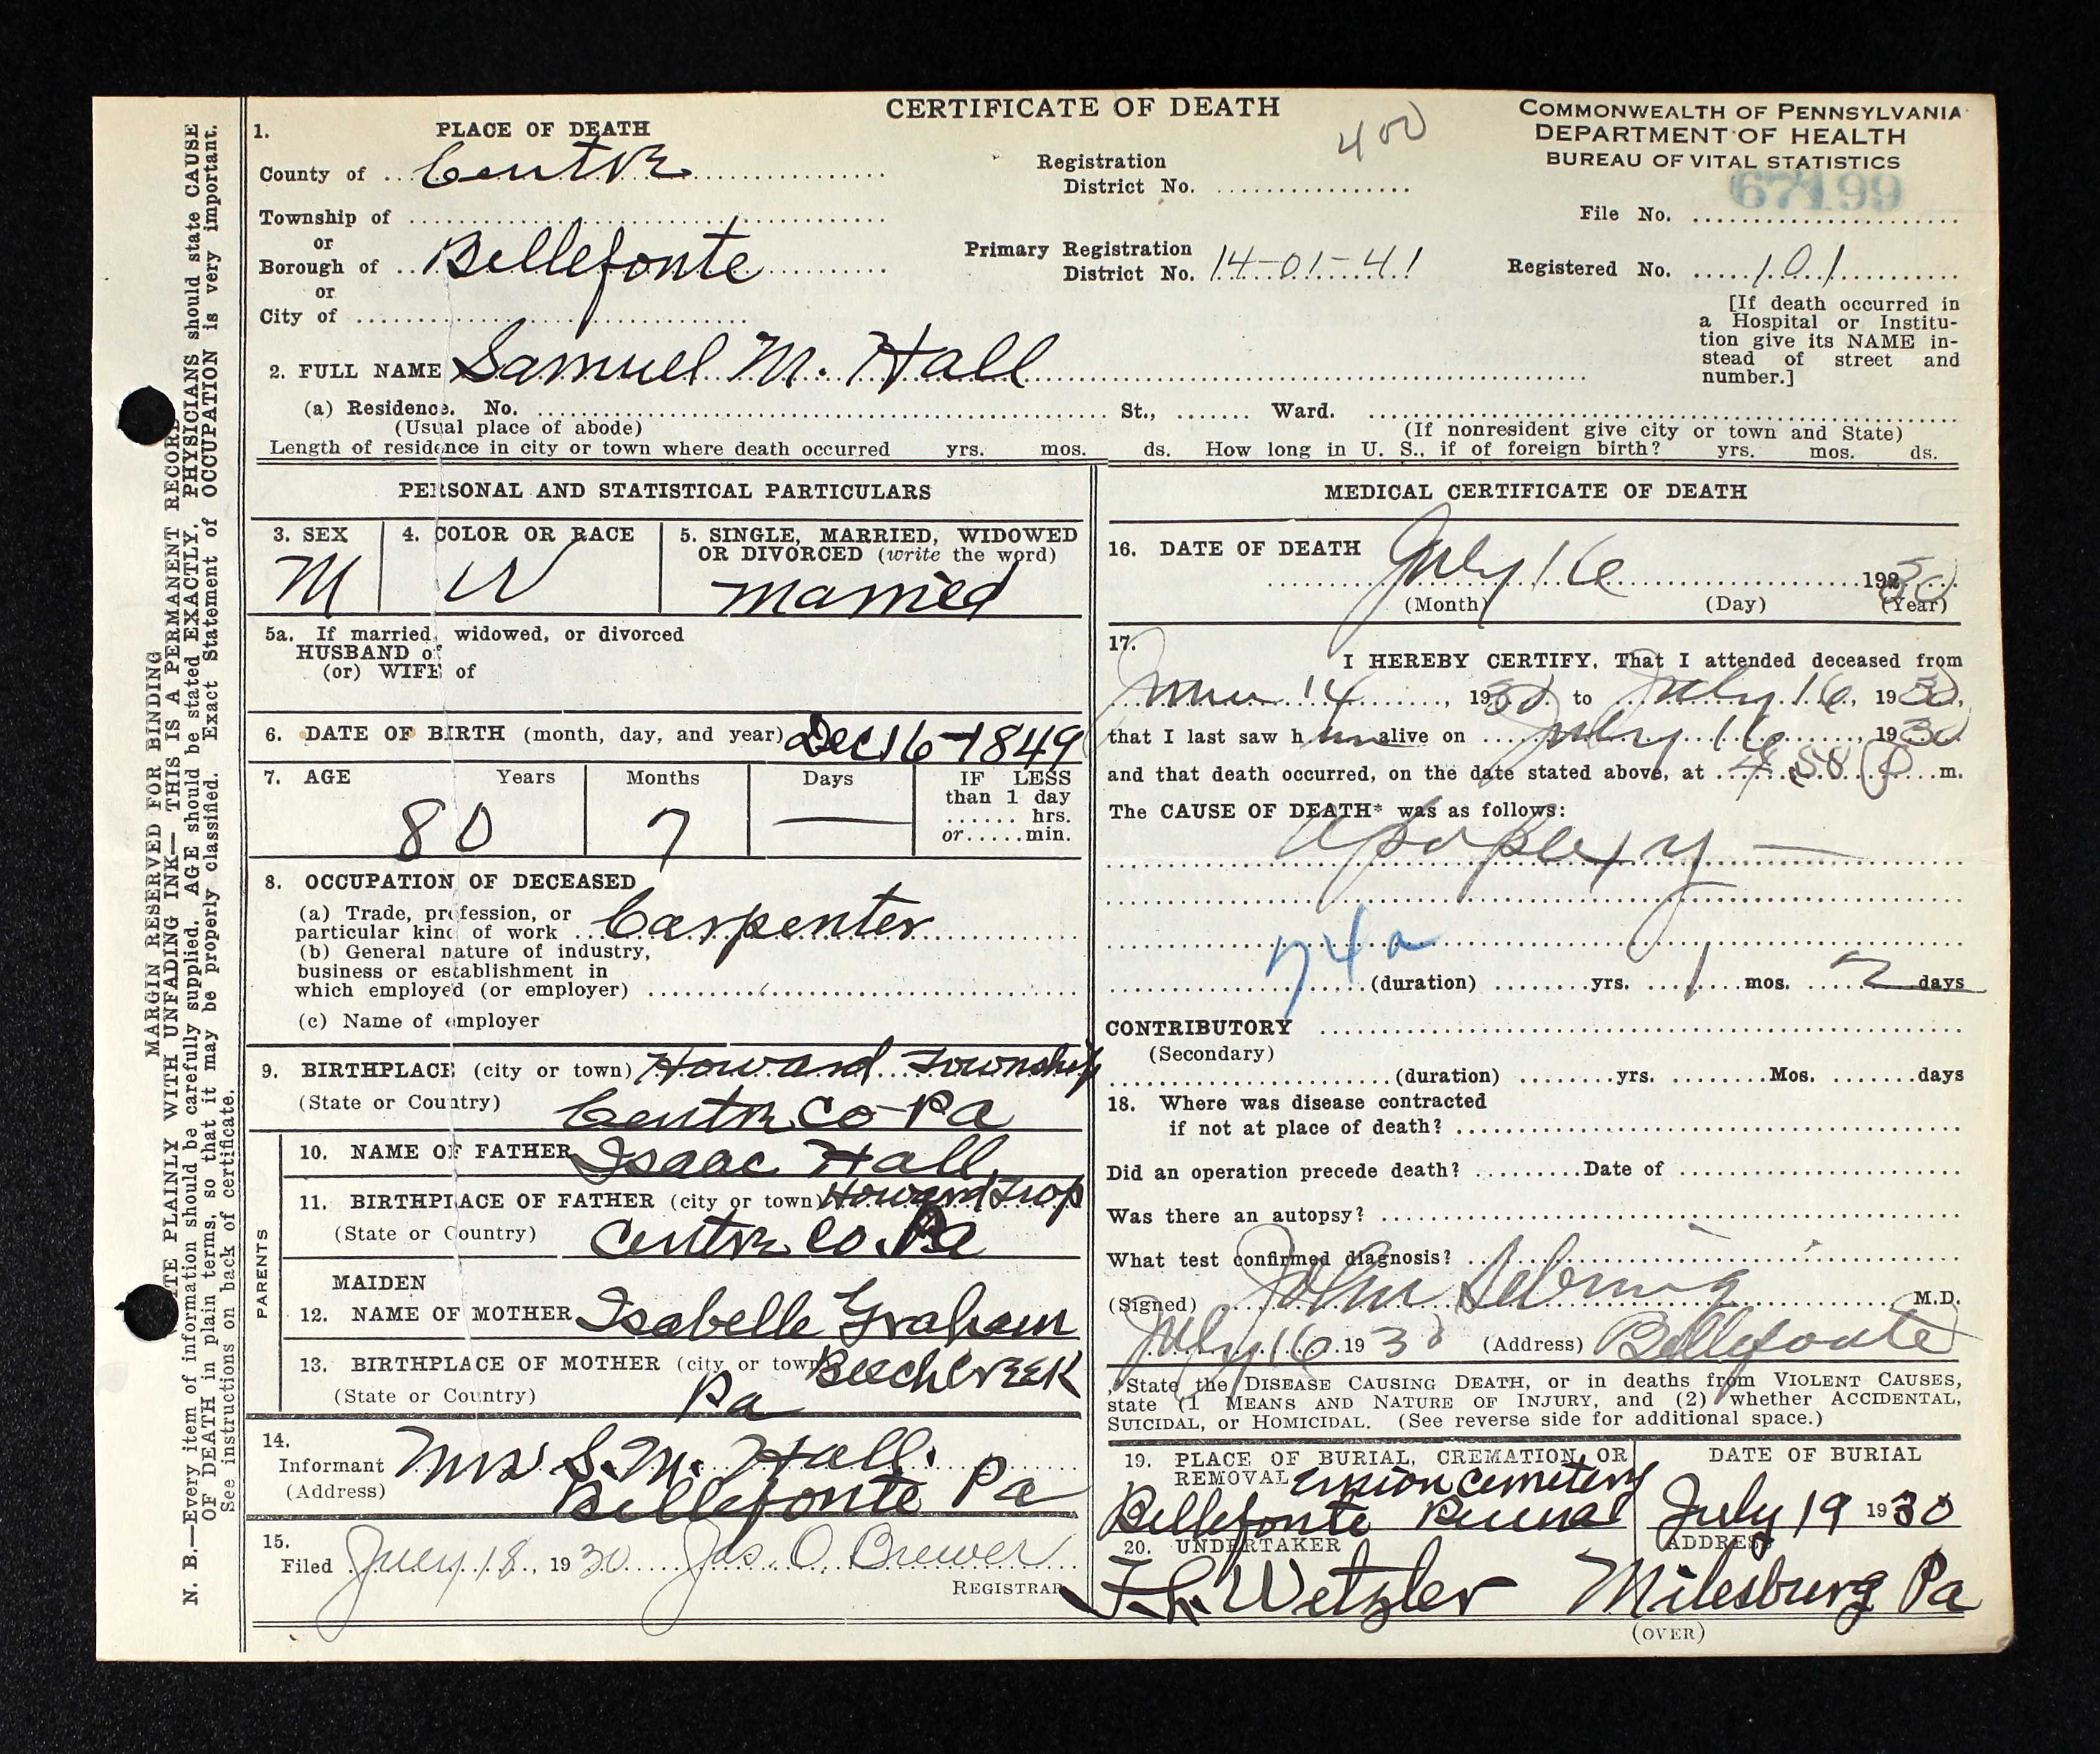 CERTIFICATE OF DEATH
COMMONWEALTH OF PENNSYLVANIA
DEPARTMENT OF HEALTH
BUREAU OF VITAL STATISTICS
400
1. PLACE OF DEATH
County of Centre
Township of
or
Borough of Bellefonte
or
City of
Registration
District No.
Primary Registration
District No. 14-01-41
File No. 67199
Registered No. 101
[If death occurred in
a Hospital or Institu-
tion give its NAME in-
stead of street and
number.]
2. FULL NAME Samuel M. Hall
(a) Residence. No. St., Ward.
(Usual place of abode) (If nonresident give city or town and State)
Length of residence in city or town where death occurred yrs. mos. ds. How long in U. S., if of foreign birth? yrs. mos. ds.
PERSONAL AND STATISTICAL PARTICULARS
3. SEX
M
4. COLOR OR RACE
W
5. SINGLE, MARRIED, WIDOWED
OR DIVORCED (write the word)
married
5a. If married, widowed, or divorced
HUSBAND of
(or) WIFE of
6. DATE OF BIRTH (month, day, and year) Dec 16-1849
7. AGE Years Months Days
80 7 —
IF LESS
than 1 day
...... hrs.
or.....min.
8. OCCUPATION OF DECEASED
(a) Trade, profession, or
particular kind of work Carpenter
(b) General nature of industry,
business or establishment in
which employed (or employer)
(c) Name of employer
9. BIRTHPLACE (city or town) Howard Township
(State or Country) Centre Co-Pa
PARENTS
10. NAME OF FATHER Isaac Hall
11. BIRTHPLACE OF FATHER (city or town) Howard Twp
(State or Country) Centre Co. Pa
MAIDEN
12. NAME OF MOTHER Isabelle Graham
13. BIRTHPLACE OF MOTHER (city or town) Beech Creek
(State or Country) Pa
14.
Informant Mrs S. M. Hall.
(Address) Bellefonte Pa
15.
Filed July 18, 1930 Jas. O. Brewer
REGISTRAR
MEDICAL CERTIFICATE OF DEATH
16. DATE OF DEATH July 16 19230
(Month) (Day) (Year)
17.
I HEREBY CERTIFY, That I attended deceased from
June 14, 1930 to July 16, 1930,
that I last saw him alive on July 16, 1930
and that death occurred, on the date stated above, at 4:58 P m.
The CAUSE OF DEATH* was as follows:
Apoplexy —
74a
(duration) yrs. 1 mos. 2 days
CONTRIBUTORY
(Secondary)
(duration) yrs. Mos. days
18. Where was disease contracted
if not at place of death?
Did an operation precede death? Date of
Was there an autopsy?
What test confirmed diagnosis?
(Signed) John Sebring M.D.
July 16, 1930 (Address) Bellefonte
State the DISEASE CAUSING DEATH, or in deaths from VIOLENT CAUSES,
state (1 MEANS AND NATURE OF INJURY, and (2) whether ACCIDENTAL,
SUICIDAL, or HOMICIDAL. (See reverse side for additional space.)
19. PLACE OF BURIAL, CREMATION, OR
REMOVAL Union Cemetery
Bellefonte
DATE OF BURIAL
July 19 1930
20. UNDERTAKER
F. R. Wetzler
ADDRESS
Milesburg Pa
(OVER)
MARGIN RESERVED FOR BINDING
PLAINLY WITH UNFADING INK— THIS IS A PERMANENT RECORD
N. B.—Every item of information should be carefully supplied. AGE should be stated EXACTLY. PHYSICIANS should state CAUSE
OF DEATH in plain terms, so that it may be properly classified. Exact Statement of OCCUPATION is very important.
See instructions on back of certificate.